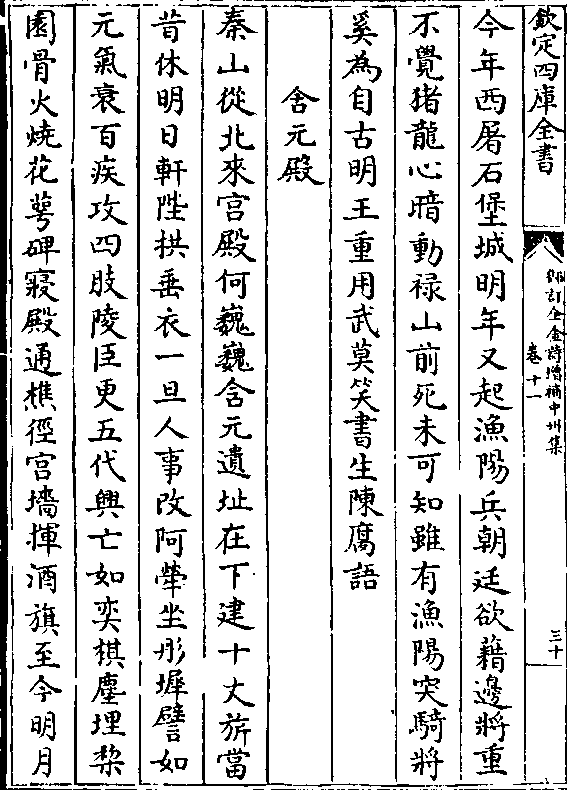 欽定四庫全書
御訂全金詩增補中州集
卷十一
三十
今年西屠石堡城明年又起漁陽兵朝廷欲藉邊將重
不覺猪龍心暗動祿山前死未可知雖有漁陽突騎將
奚為自古明王重用武莫笑書生陳腐語
含元殿
秦山從北來宮殿何巍巍含元遺址在下建十丈旂當
昔休明日軒陛拱垂衣一旦人事改阿犖坐彤墀譬如
元氣衰百疾攻四肢陵臣更五代興亡如奕棋塵埋棃
園骨火燒花萼碑寢殿通樵徑宮墻揮酒旗至今明月